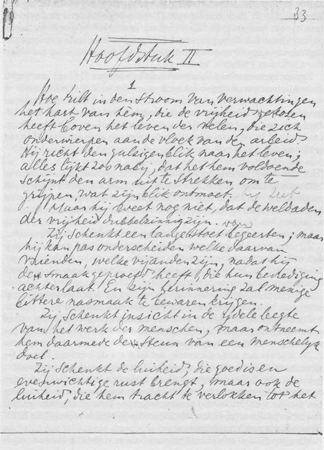 83
Hoofdstuk II
1
Hoe trilt in den stroom van verwachtingen
het hart van hem, die de vrijheid gekozen
heeft boven het leven der velen, die zich
onderwerpen aan de vloek van den arbeid.
Hij richt den gulzigen blik naar het leven;
alles lijkt zoo nabij, dat het hem voldoende
schijnt den arm uit te strekken, om te
grijpen wat zijn blik ontmoet.
Maar hij weet nog niet, dat de weldaden
der vrijheid dubbelzinnig zijn.
Zij schenkt een lange stoet begeerten; maar
hij kan pas onderscheiden welke daarvan
vrienden, welke vijanden zijn, nadat hij
de smaak geproefd heeft, die hun bevrediging
achterlaat. En zijn herinnering zal menige
bittere nasmaak te bewaren krijgen.
Zij schenkt inzicht in de ijdele leegte
van het werk der menschen, maar ontneemt
hem daarmede den steun van een menschelijk
doel.
Zij schenkt de luiheid, die goed is en
evenwichtige rust brengt, maar ook de
luiheid, die hem tracht te verlokken tot het